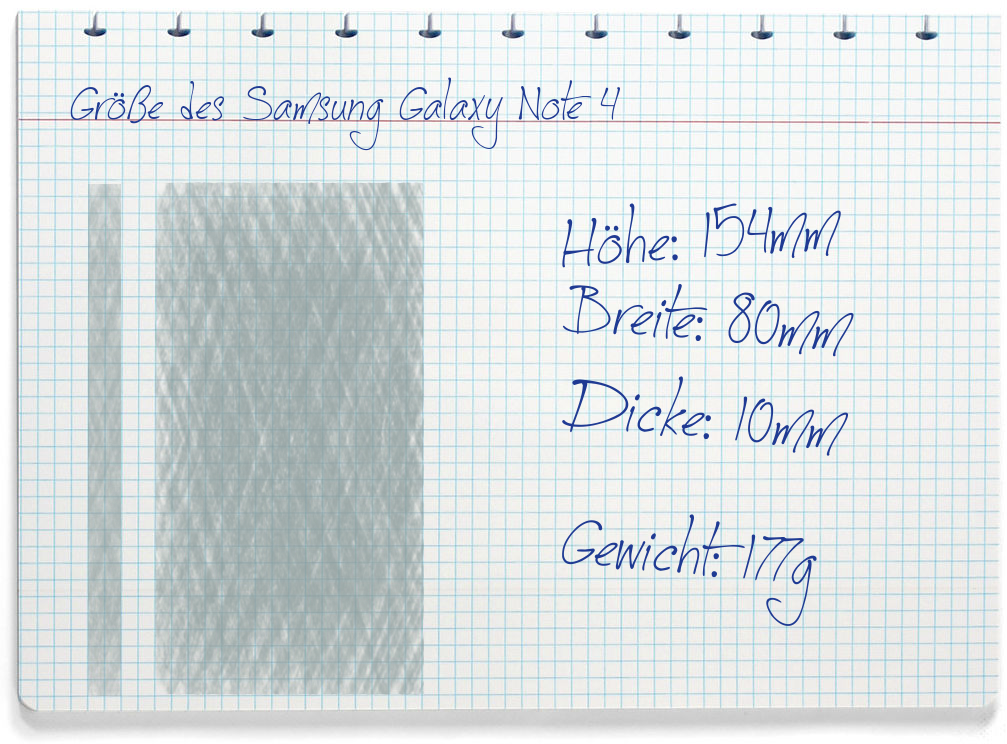 Größe des Samsung Galaxy Note 4
Höhe: 154mm
Breite: 80mm
Dicke: 10mm
Gewicht: 177g